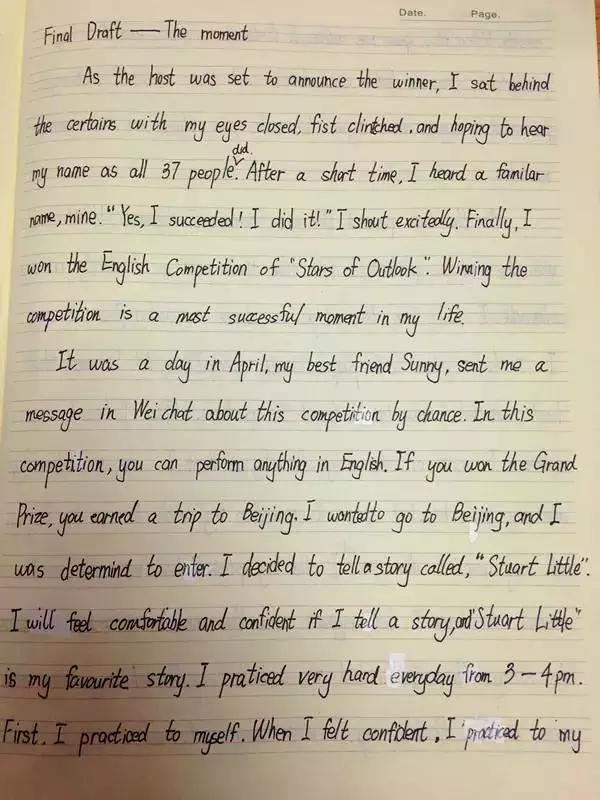 Date. Page.
Final Draft — The moment
As the host was set to announce the winner, I sat behind
the certains with my eyes closed, fist clintched, and hoping to hear
did.
my name as all 37 people. After a short time, I heard a familar
name, mine. "Yes, I succeeded! I did it!" I shout excitedly. Finally, I
won the English Competition of "Stars of Outlook". Winning the
competition is a most successful moment in my life.
It was a day in April, my best friend Sunny, sent me a
message in Wei chat about this competition by chance. In this
competition, you can perform anything in English. If you won the Grand
Prize, you earned a trip to Beijing. I wanted to go to Beijing, and I
was determind to enter. I decided to tell a story called, "Stuart Little".
I will feel comfortable and confident if I tell a story, and "Stuart Little"
is my favourite story. I praticed very hard everyday from 3 - 4 pm.
First. I practiced to myself. When I felt confident, I practiced to my